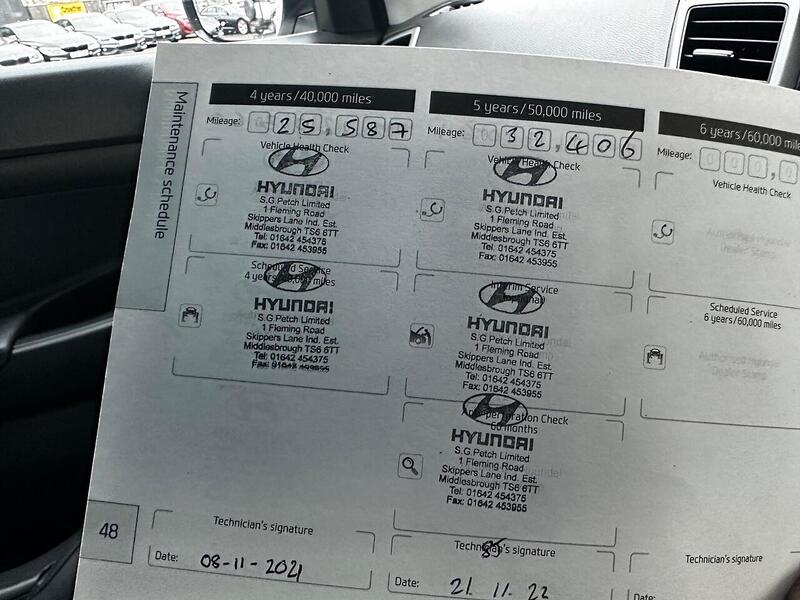 Maintenance schedule
4 years/40,000 miles
Mileage: 25,587
Vehicle Health Check
HYUNDAI
S.G.Petch Limited
1 Fleming Road
Skippers Lane Ind. Est.
Middlesbrough TS6 6TT
Tel: 01642 454375
Fax: 01642 453955
Scheduled Service
4 years/40,000 miles
HYUNDAI
S.G.Petch Limited
1 Fleming Road
Skippers Lane Ind. Est.
Middlesbrough TS6 6TT
Tel: 01642 454375
Fax: 01642 453955
Technician's signature
Date: 08-11-2021
48
5 years/50,000 miles
Mileage: 32,406
Vehicle Health Check
HYUNDAI
S.G.Petch Limited
1 Fleming Road
Skippers Lane Ind. Est.
Middlesbrough TS6 6TT
Tel: 01642 454375
Fax: 01642 453955
Interim Service
(optional)
HYUNDAI
S.G.Petch Limited
1 Fleming Road
Skippers Lane Ind. Est.
Middlesbrough TS6 6TT
Tel: 01642 454375
Fax: 01642 453955
Anti-perforation Check
60 months
HYUNDAI
S.G.Petch Limited
1 Fleming Road
Skippers Lane Ind. Est.
Middlesbrough TS6 6TT
Tel: 01642 454375
Fax: 01642 453955
Technician's signature
Date: 21.11.22
6 years/60,000 miles
Mileage: 000,0
Vehicle Health Check
Authorised Hyundai
Dealer Stamp
Scheduled Service
6 years/60,000 miles
Authorised Hyundai
Dealer Stamp
Technician's signature
Date: